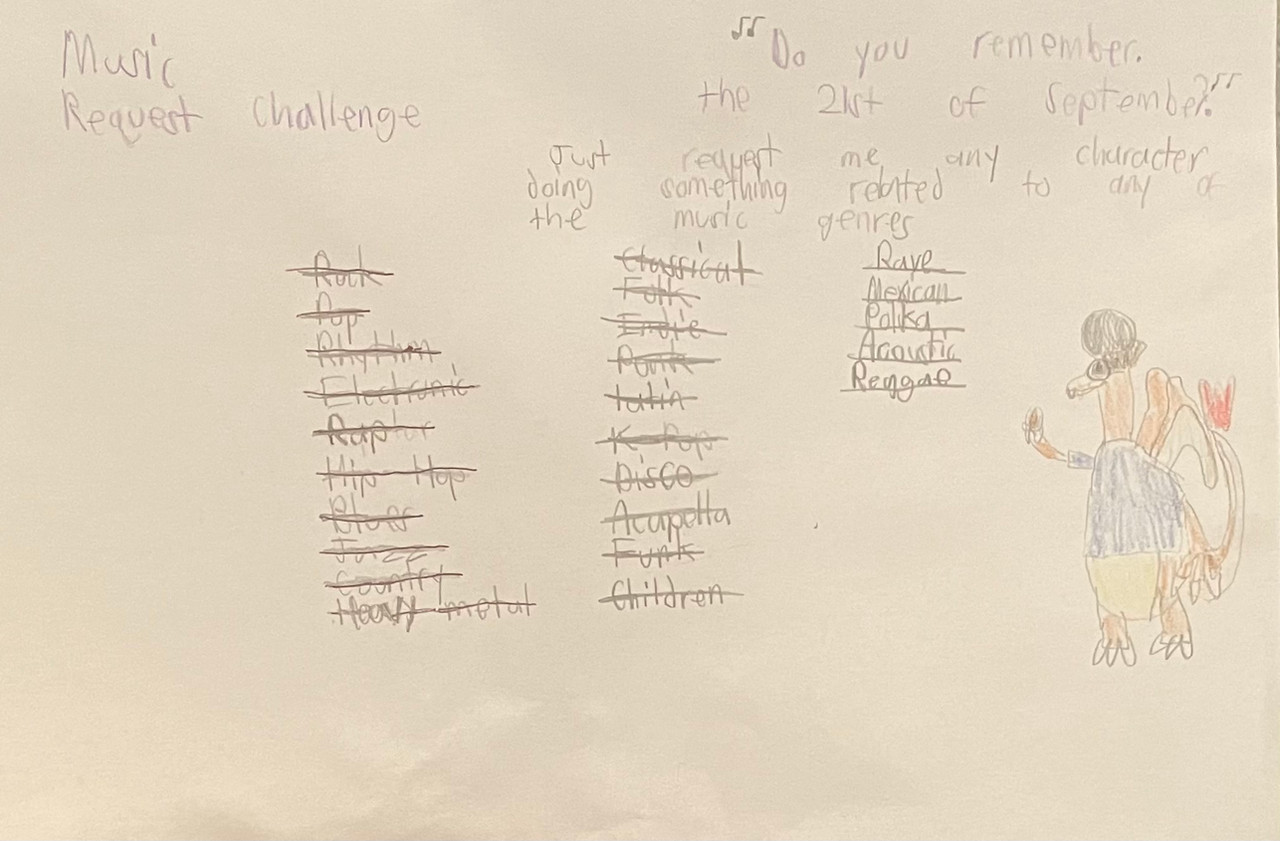 Music
Request Challenge
"Do you remember.
the 21st of September?"
Just request me any character
doing something related to any of
the music genres
Rock
Pop
Rhythm
Electronic
Rap
Hip Hop
Blues
Jazz
Country
Heavy metal
Classical
Folk
Indie
Punk
Latin
K-Pop
Disco
Acapella
Funk
Children
Rave
Mexican
Polka
Acoustic
Reggae